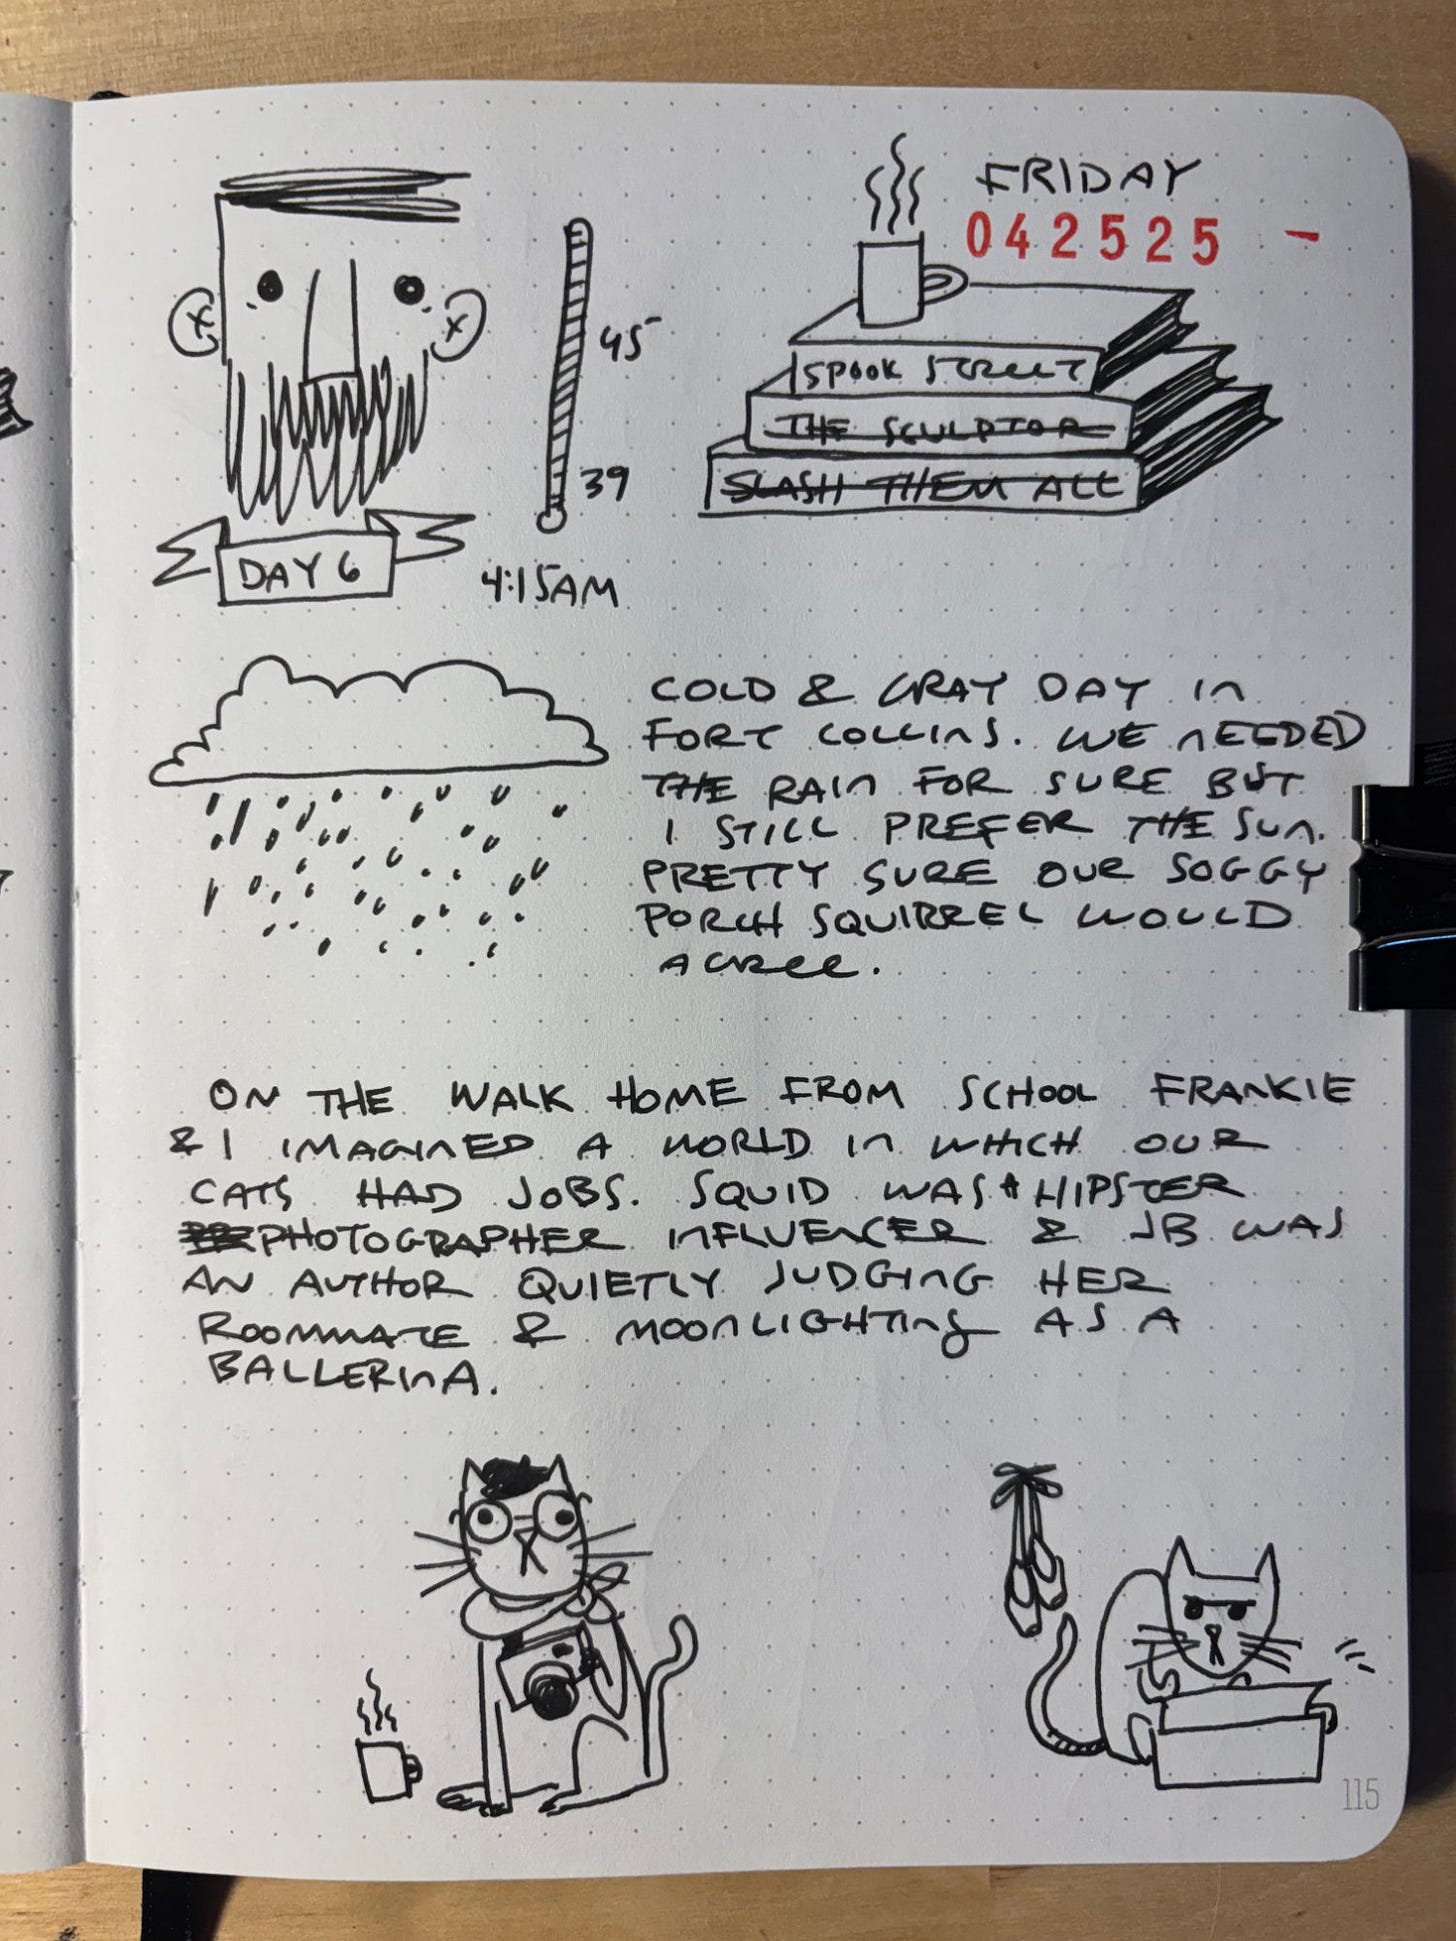 FRIDAY
042525 -
45
39
SPOOK STREET
THE SCULPTOR
SLASH THEM ALL
DAY 6
4:15AM
COLD & GRAY DAY IN
FORT COLLINS. WE NEEDED
THE RAIN FOR SURE BUT
I STILL PREFER THE SUN.
PRETTY SURE OUR SOGGY
PORCH SQUIRREL WOULD
AGREE.
ON THE WALK HOME FROM SCHOOL FRANKIE
& I IMAGINED A WORLD IN WHICH OUR
CATS HAD JOBS. SQUID WAS A HIPSTER
PHOTOGRAPHER INFLUENCER & JB WAS
AN AUTHOR QUIETLY JUDGING HER
ROOMMATE & MOONLIGHTING AS A
BALLERINA.
115